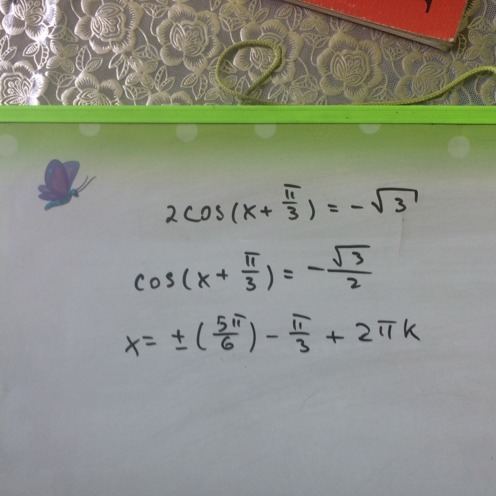 2cos(x+π/3)=-√3
cos(x+π/3)=-√3/2
x=±(5π/6)-π/3+2πk